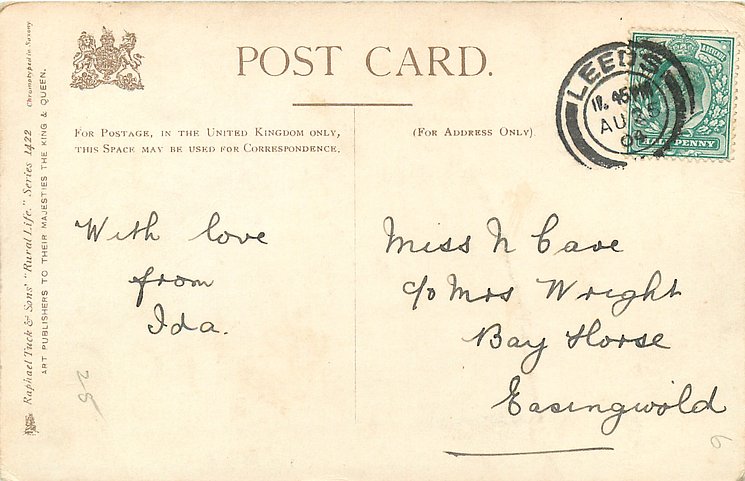 POST CARD.
FOR POSTAGE, IN THE UNITED KINGDOM ONLY,
THIS SPACE MAY BE USED FOR CORRESPONDENCE.
(FOR ADDRESS ONLY)
LEEDS
AU
HALFPENNY
With love
from
Ida.
Miss N Cave
c/o Mrs Wright
Bay Horse
Easingwold
Raphael Tuck & Sons' "Rural Life." Series 1422
ART PUBLISHERS TO THEIR MAJESTIES THE KING & QUEEN.
Chromotyped in Saxony
28
6